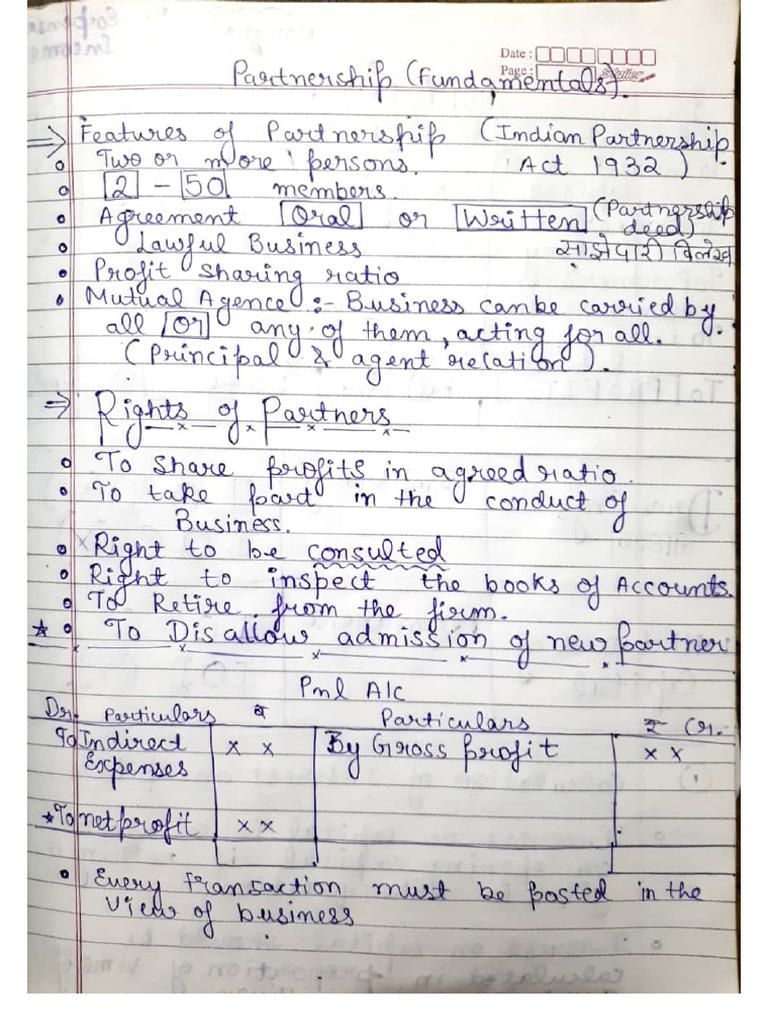 Date :
Page :
Partnership (Fundamentals).
⇒ Features of Partnership (Indian Partnership
Act 1932)
• Two or more persons.
• 2 - 50 members.
• Agreement Oral or Written (Partnership
deed)
• Lawful Business साझेदारी विलेख
• Profit sharing ratio
• Mutual Agence :- Business can be carried by
all or any of them, acting for all.
(Principal & agent relation).
⇒ Rights of Partners
• To share profits in agreed ratio.
• To take part in the conduct of
Business.
• Right to be consulted
• Right to inspect the books of Accounts.
• To Retire from the firm.
* • To Disallow admission of new partner
Pnl A/c
Dr. Particulars ₹ Particulars ₹ Cr.
To Indirect x x By Gross profit x x
Expenses
* To net profit x x
• Every Transaction must be posted in the
view of business